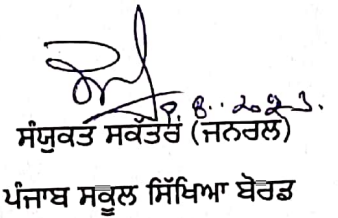 8..2023.
ਸੰਯੁਕਤ ਸਕੱਤਰ (ਜਨਰਲ)
ਪੰਜਾਬ ਸਕੂਲ ਸਿੱਖਿਆ ਬੋਰਡ